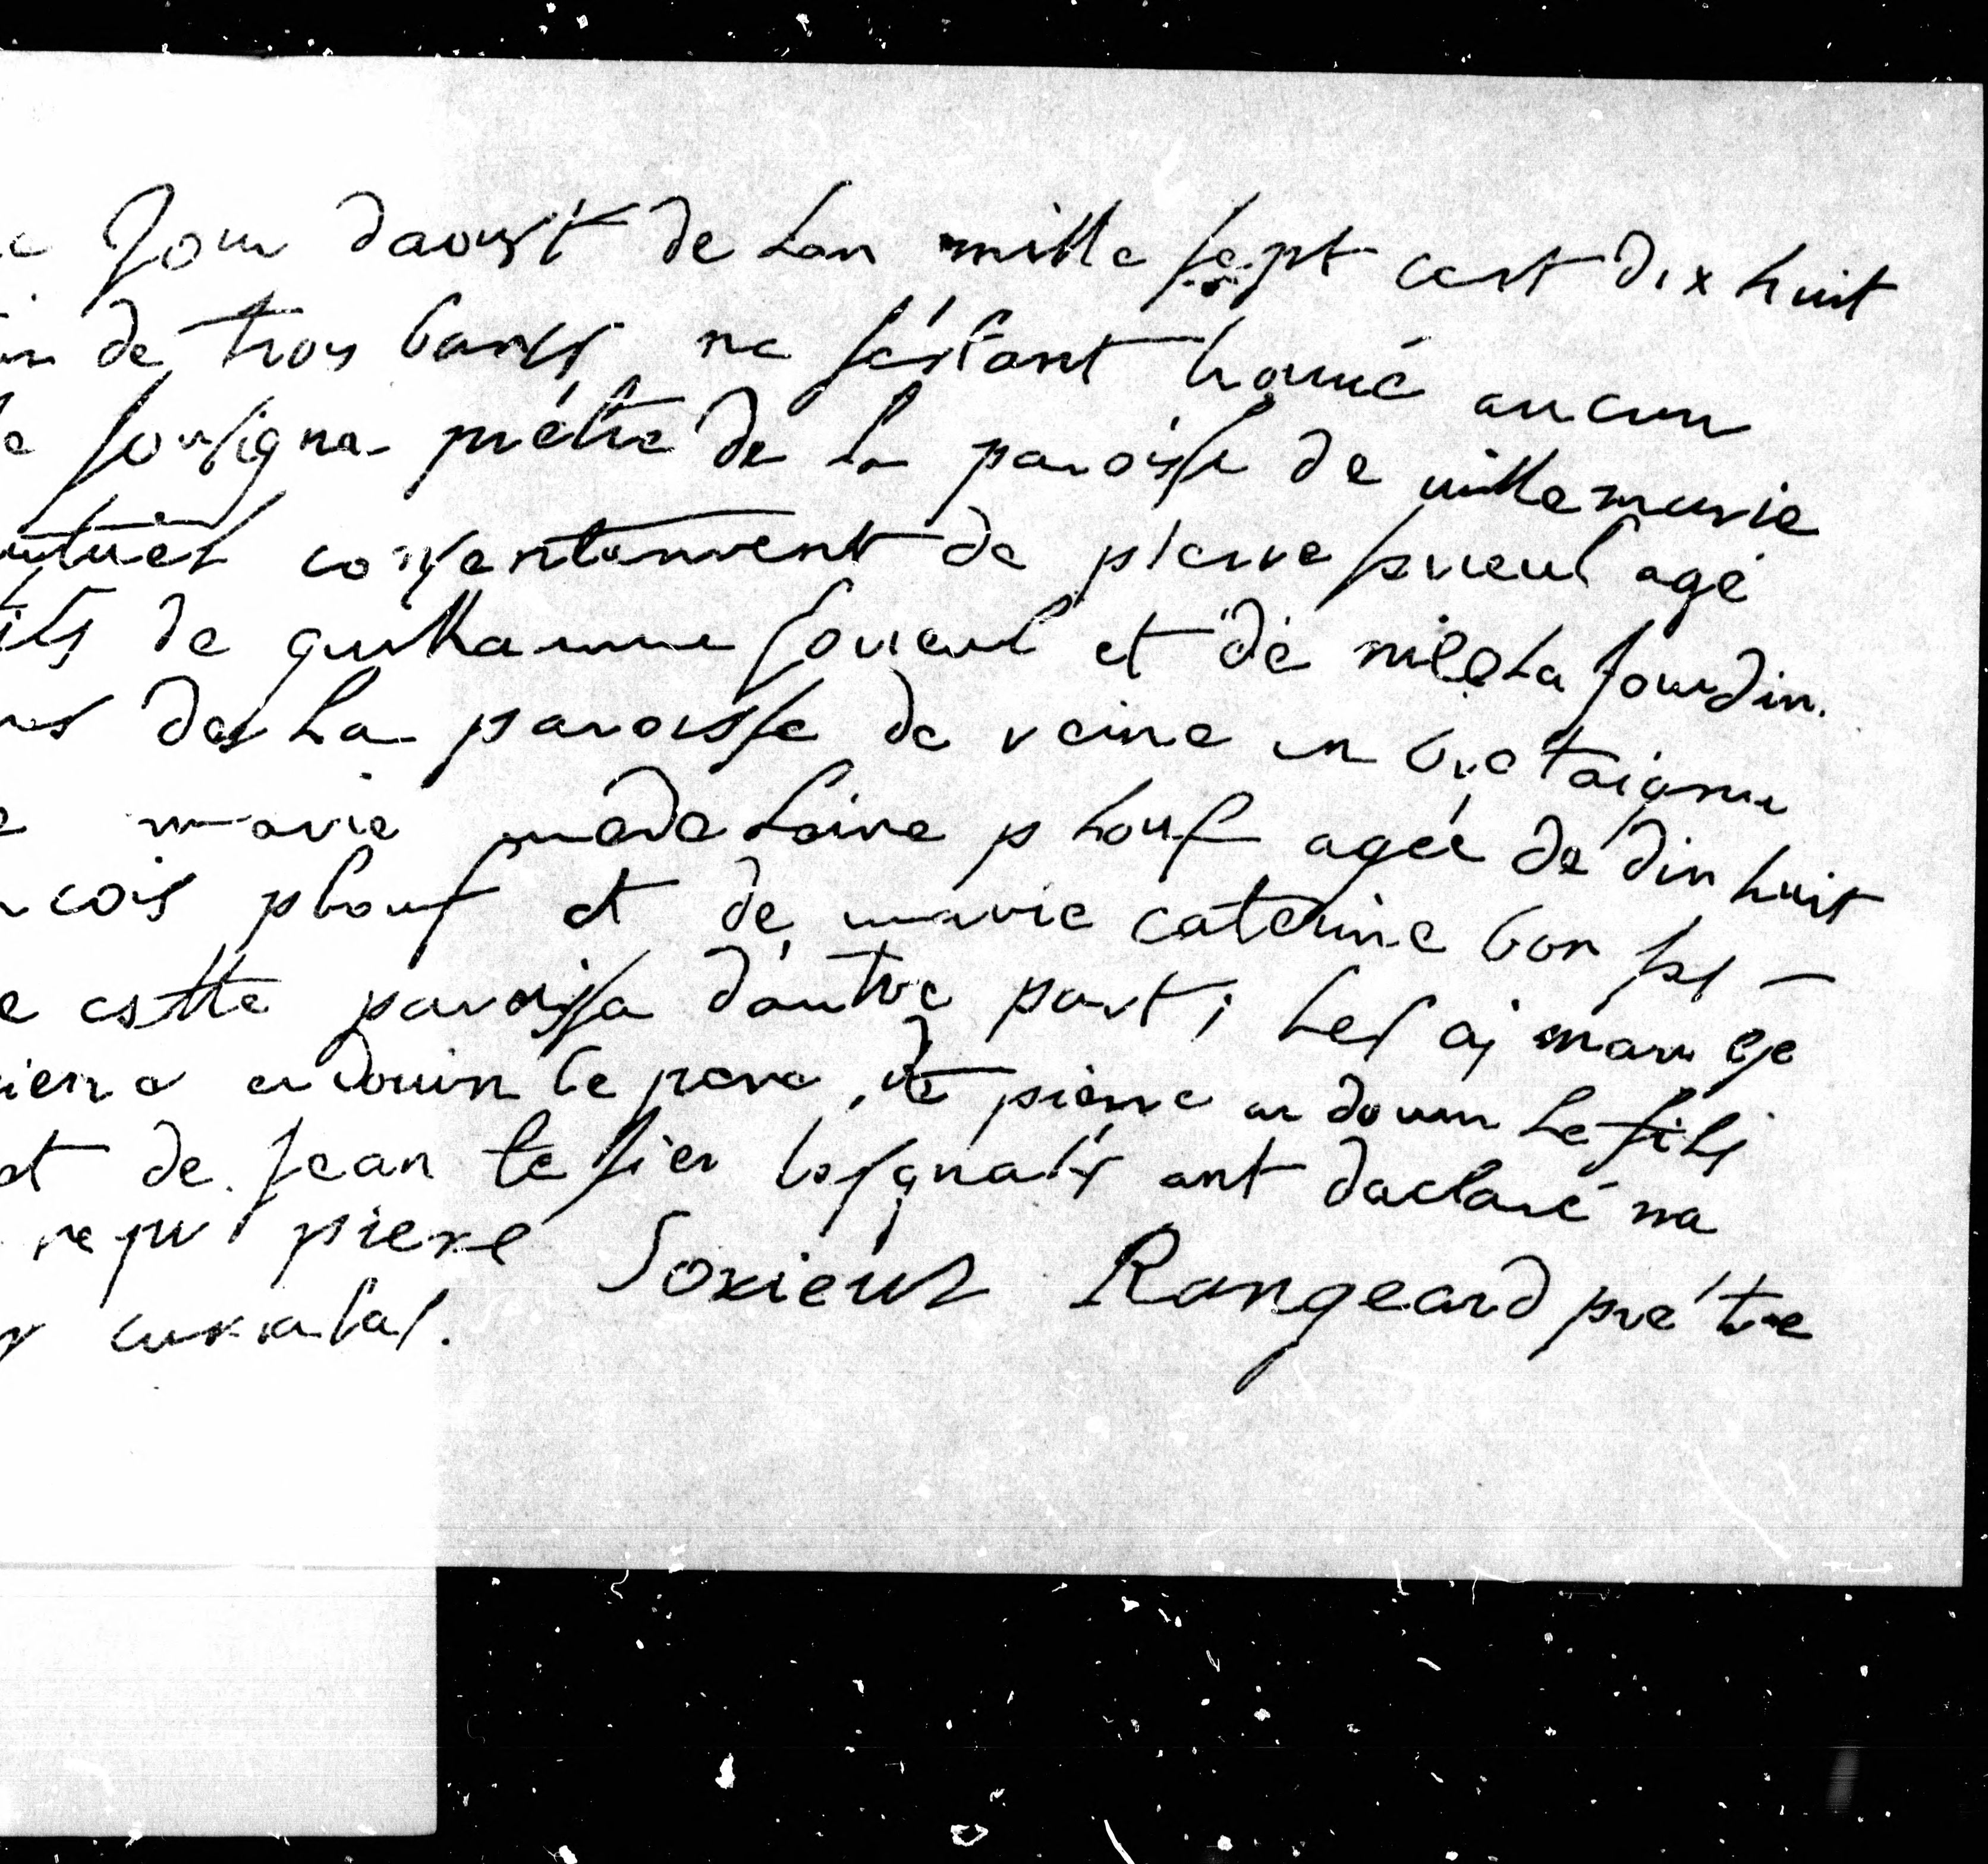 Jour daoust de Lan mille sept cent dix huit
de trois bans ne sestant trouué aucun
sousigné prétre de la paroisse de uille marie
consentement de pierre sorieul agé
fils de guillaume sorieul et de nicola Jourdin.
de La paroisse de reine en bretaigne
marie madelaine plouf agée de dix huit
plouf et de marie caterine bon
cette paroisse dautre part; Les aj marié
ardouin le pere, et pierre ardouin Le fils
et de Jean tesier lesquels ont declaré ne
pierre Sorieul Rangeard prétre
curialas.